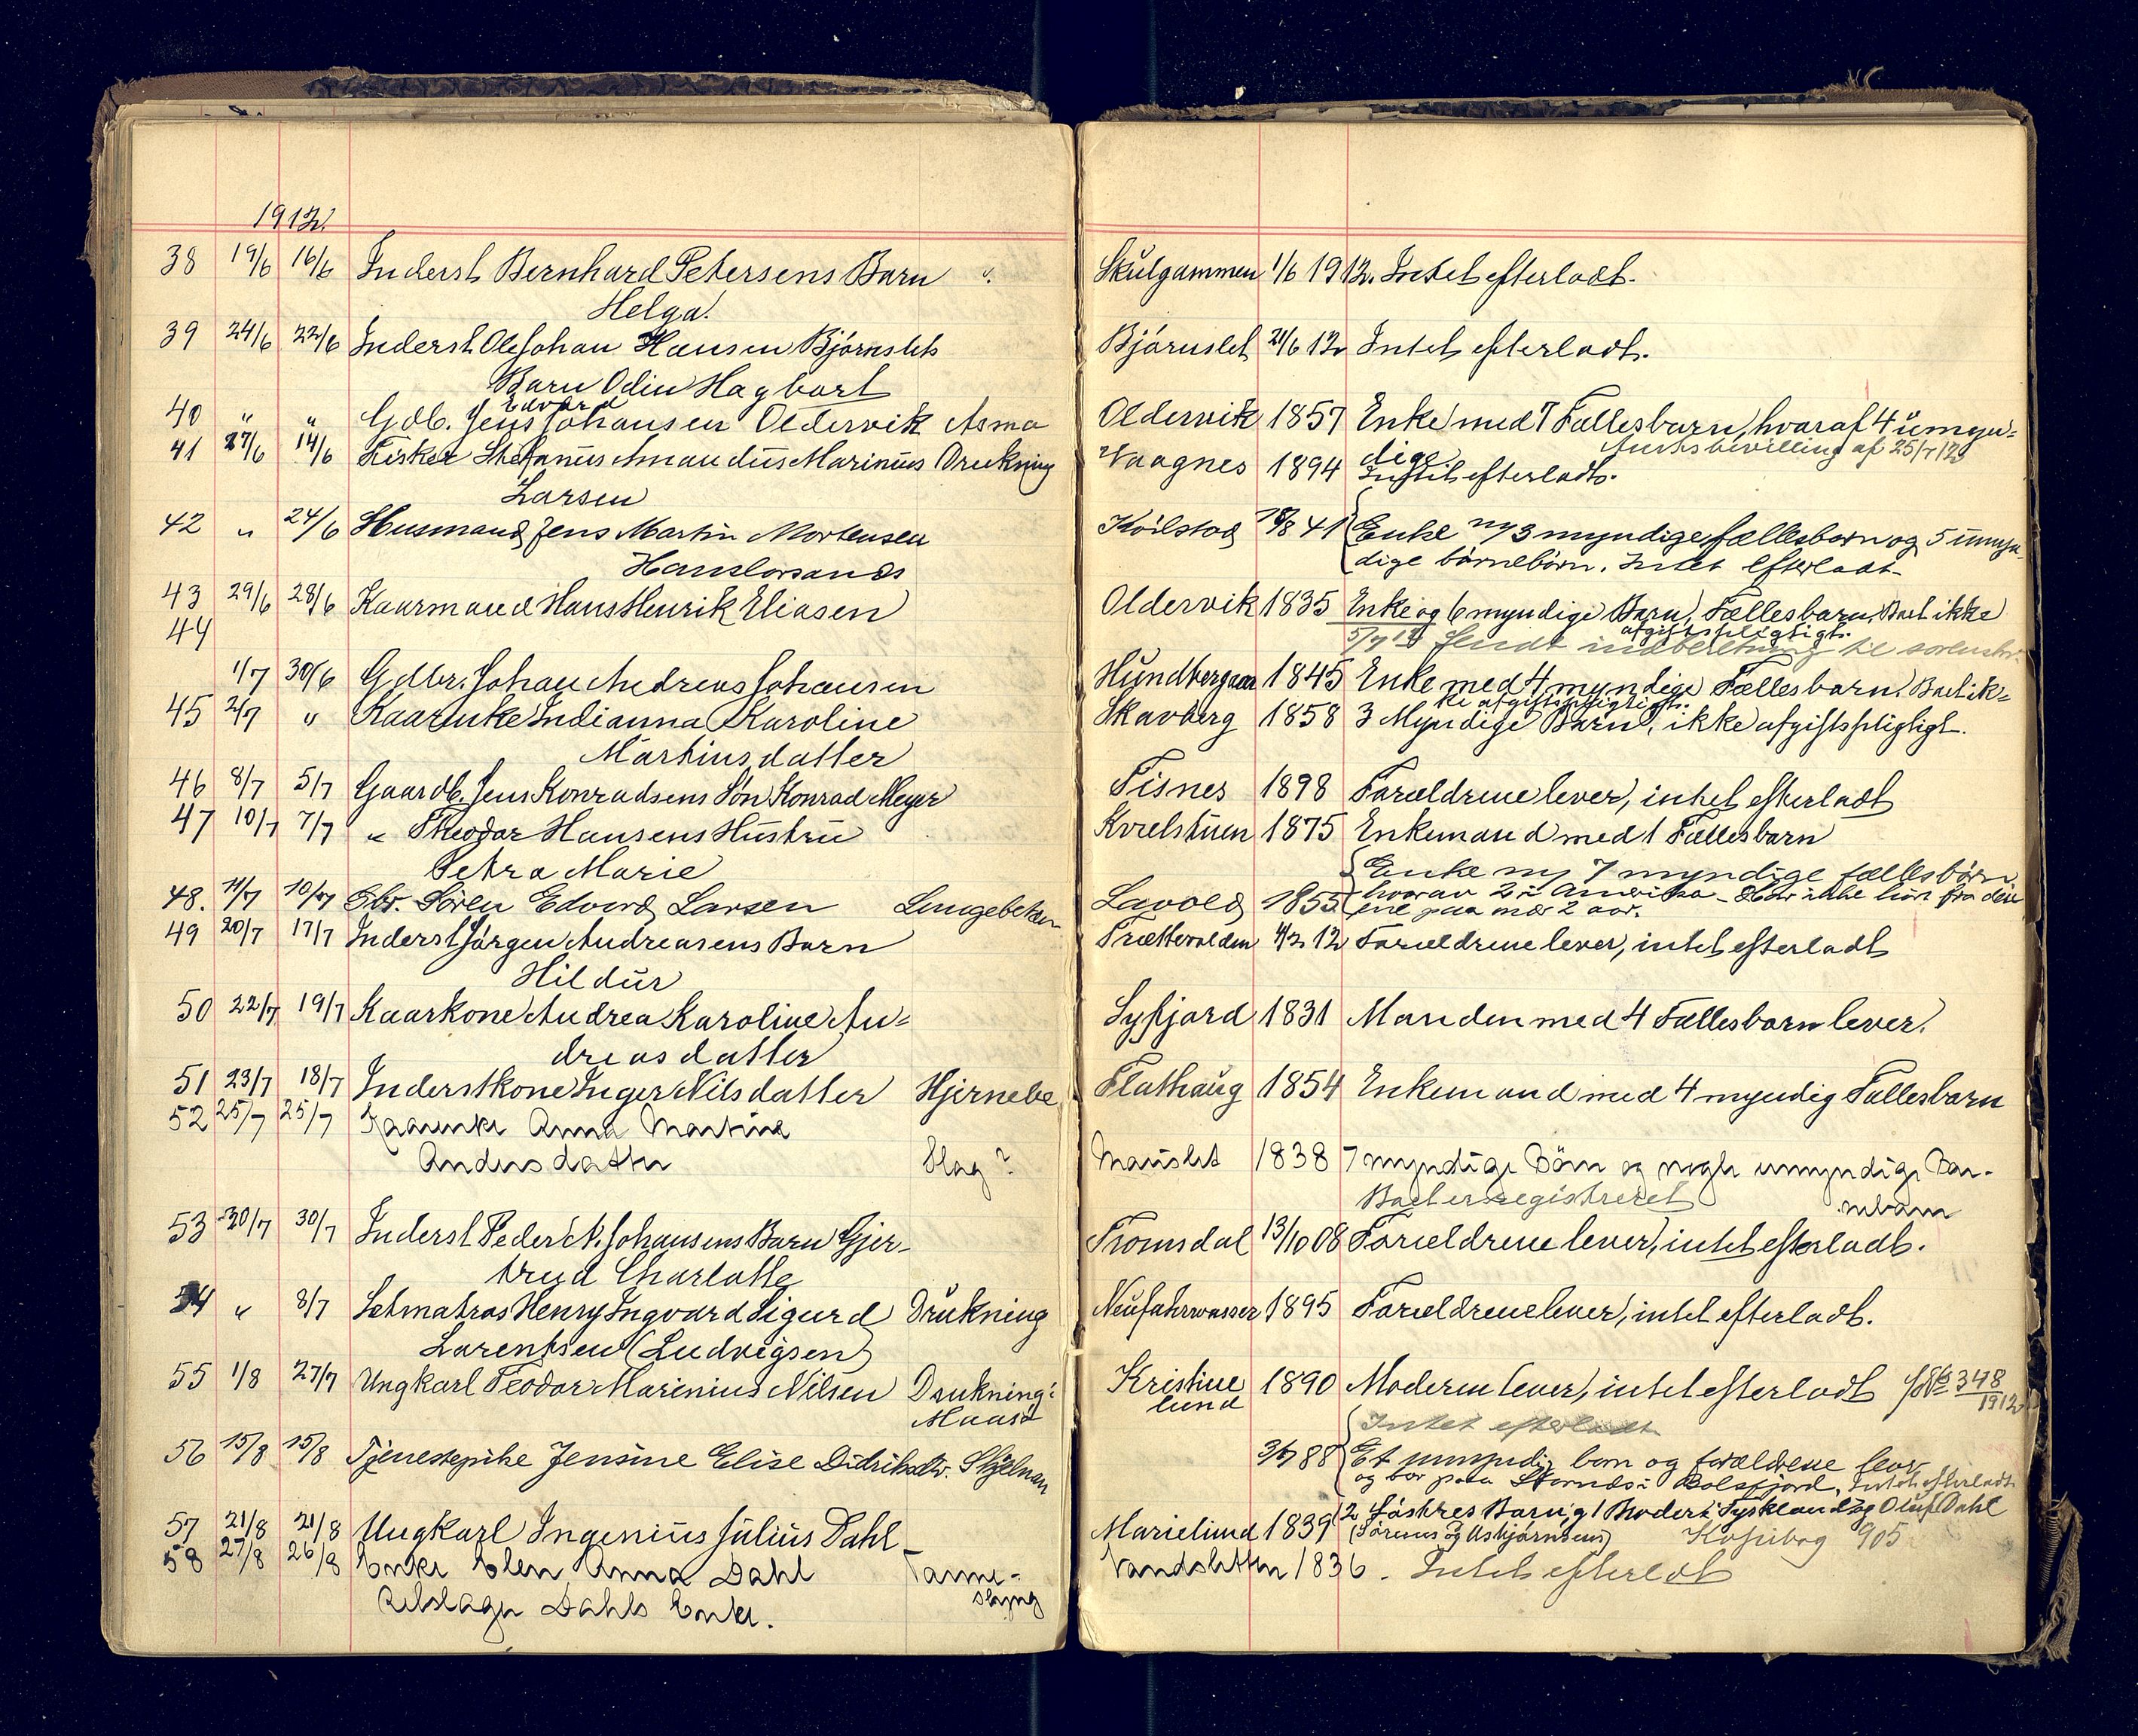 1912.
38 19/6 16/6 Inderst Bernhard Petersens Barn "
Helga.
39 24/6 22/6 Inderst Ole Johan Hansen Bjørnslets
Barn Odin Hagbart
Edvard
40 " " Gdb. Jens Johansen Oldervik Asma
41 27/6 14/6 Fisker Stefanus Amandus Marinus Drukning
Larsen
42 " 24/6 Husmand Jens Martin Mortensen
43 29/6 28/6 Kaarmand Hans Henrik Eliasen
44
1/7 30/6 Gdbr. Johan Andreas Johansen
45 2/7 " Kaarenke Indianna Karoline
Martinsdatter
46 8/7 5/7 Gaardb. Jens Konradsens Søn Konrad Meyer
47 10/7 7/7 " Theodor Hansens Hustru
Petra Marie
48. 11/7 10/7 Gbr. Sören Edvard Larsen
49 20/7 17/7 Inderst Jørgen Andreasens Barn
Hildur
50 22/7 19/7 Kaarkone Andrea Karoline An=
dreasdatter
51 23/7 18/7 Inderstkone Inger Nilsdatter Hjernebe
52 25/7 25/7 Kaarenke Anna Martine
Andersdatter Slag?
53 30/7 30/7 Inderst Peder A. Johansens Barn Gjer-
tryd Charlotte
54 " 8/7 Letmatros Henry Ingvard Sigurd Drukning
Larentsen (Ludvigsen)
55 1/8 27/7 Ungkarl Teodor Marinius Nilsen Drukning:
56 15/8 15/8 Tjenestepike Jensine Elise Didriksdtr.
57 21/8 21/8 Ungkarl Ingenius Julius Dahl
58 27/8 26/8 Enke Elen Anna Dahl Tarme-
Rebslager Dahls Enke. slyng
Skulgammen 1/6 1912. Intet efterladt.
Bjørnslet 21/6 12 Intet efterladt.
Oldervik 1857 Enke med 7 Fællesbarn, hvoraf 4 umyn=
dige Auksbevilling af 25/7 12
Vaagnes 1894 Intet efterladt.
41 Enke m/ 3 myndige fællesbørn og 5 umyn
dige børnebørn. Intet efterladt.
Oldervik 1835 Enke og 6 myndige Barn, Fællesbarn, Boet ikke
afgiftspligtigt.
5/7 12 Sendt indberetning til sorenskr.
Hundbergaen 1845 Enke med 4 myndige Fællesbarn. Boet ik=
ke afgiftspligtigt.
Skavberg 1858 3 Myndige Barn, ikke afgiftspligtigt.
Tisnes 1898 Forældrene lever, intet efterladt
Kvelstuen 1875 Enkemand med 1 Fællesbarn
Enke m/ 7 myndige fællesbörn
Lavold 1855 hvorav 2 i Amerika - Har ikke hört fra disse
ene paa mer 2 aar.
12 Forældrene lever, intet efterladt
Lyfjord 1831 Manden med 4 Fællesbarn lever.
Flathaug 1854 Enkemand med 4 myndig Fællesbarn
Mauslet 1838 7 myndige Börn og nogle umyndige Bar-
nebarn
Boet er registreret
Tromsdal 13/10 08 Forældrene lever, intet efterladt.
Neufahrwasser 1895 Forældrene lever, intet efterladt.
Kristine 1890 Moderen lever, intet efterladt 348
lund 1912
Intet efterladt
88 Et umyndig barn og forældrene lever
og bor paa Stornes i Balsfjord. Intet efterladt
2 Søstres Barn, 1 Broder i Tyskland og Oluf Dahl
Marielund 1839 (Sørens og Asbjørnsens) Kopibog 905
Vandsletten 1836. Intet efterladt